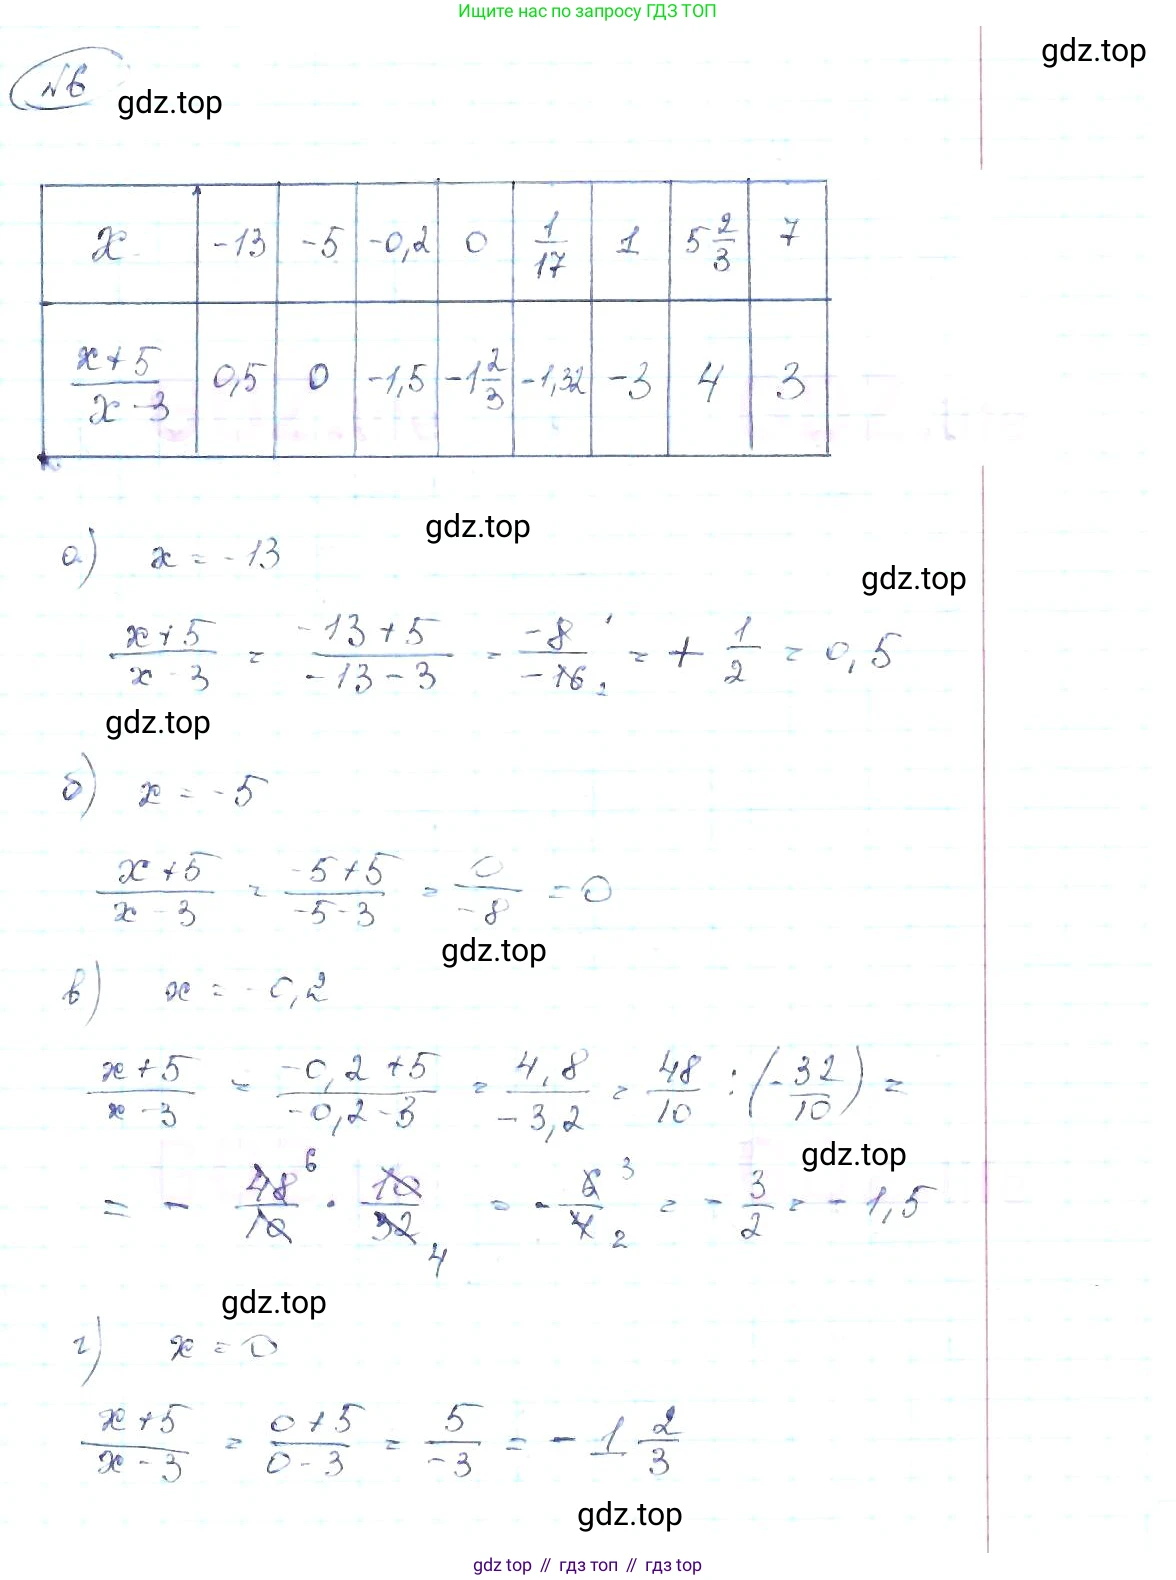 Ищите нас по запросу ГДЗ ТОП
gdz.top
№6
gdz.top
x -13 -5 -0,2 0 1/17 1 5 2/3 7
(x+5)/(x-3) 0,5 0 -1,5 -1 2/3 -1,32 -3 4 3
gdz.top
а) x = -13
gdz.top
(x+5)/(x-3) = (-13+5)/(-13-3) = -8/-16 1 2 = + 1/2 = 0,5
gdz.top
б) x = -5
(x+5)/(x-3) = (-5+5)/(-5-3) = 0/-8 = 0
gdz.top
в) x = -0,2
(x+5)/(x-3) = (-0,2+5)/(-0,2-3) = 4,8/-3,2 = 48/10 : (-32/10) =
gdz.top
= - 48/10 6 · 10/32 4 = - 6/4 3 2 = - 3/2 = - 1,5
gdz.top
г) x = 0
(x+5)/(x-3) = (0+5)/(0-3) = 5/-3 = - 1 2/3
gdz.top
gdz top // гдз топ // гдз top